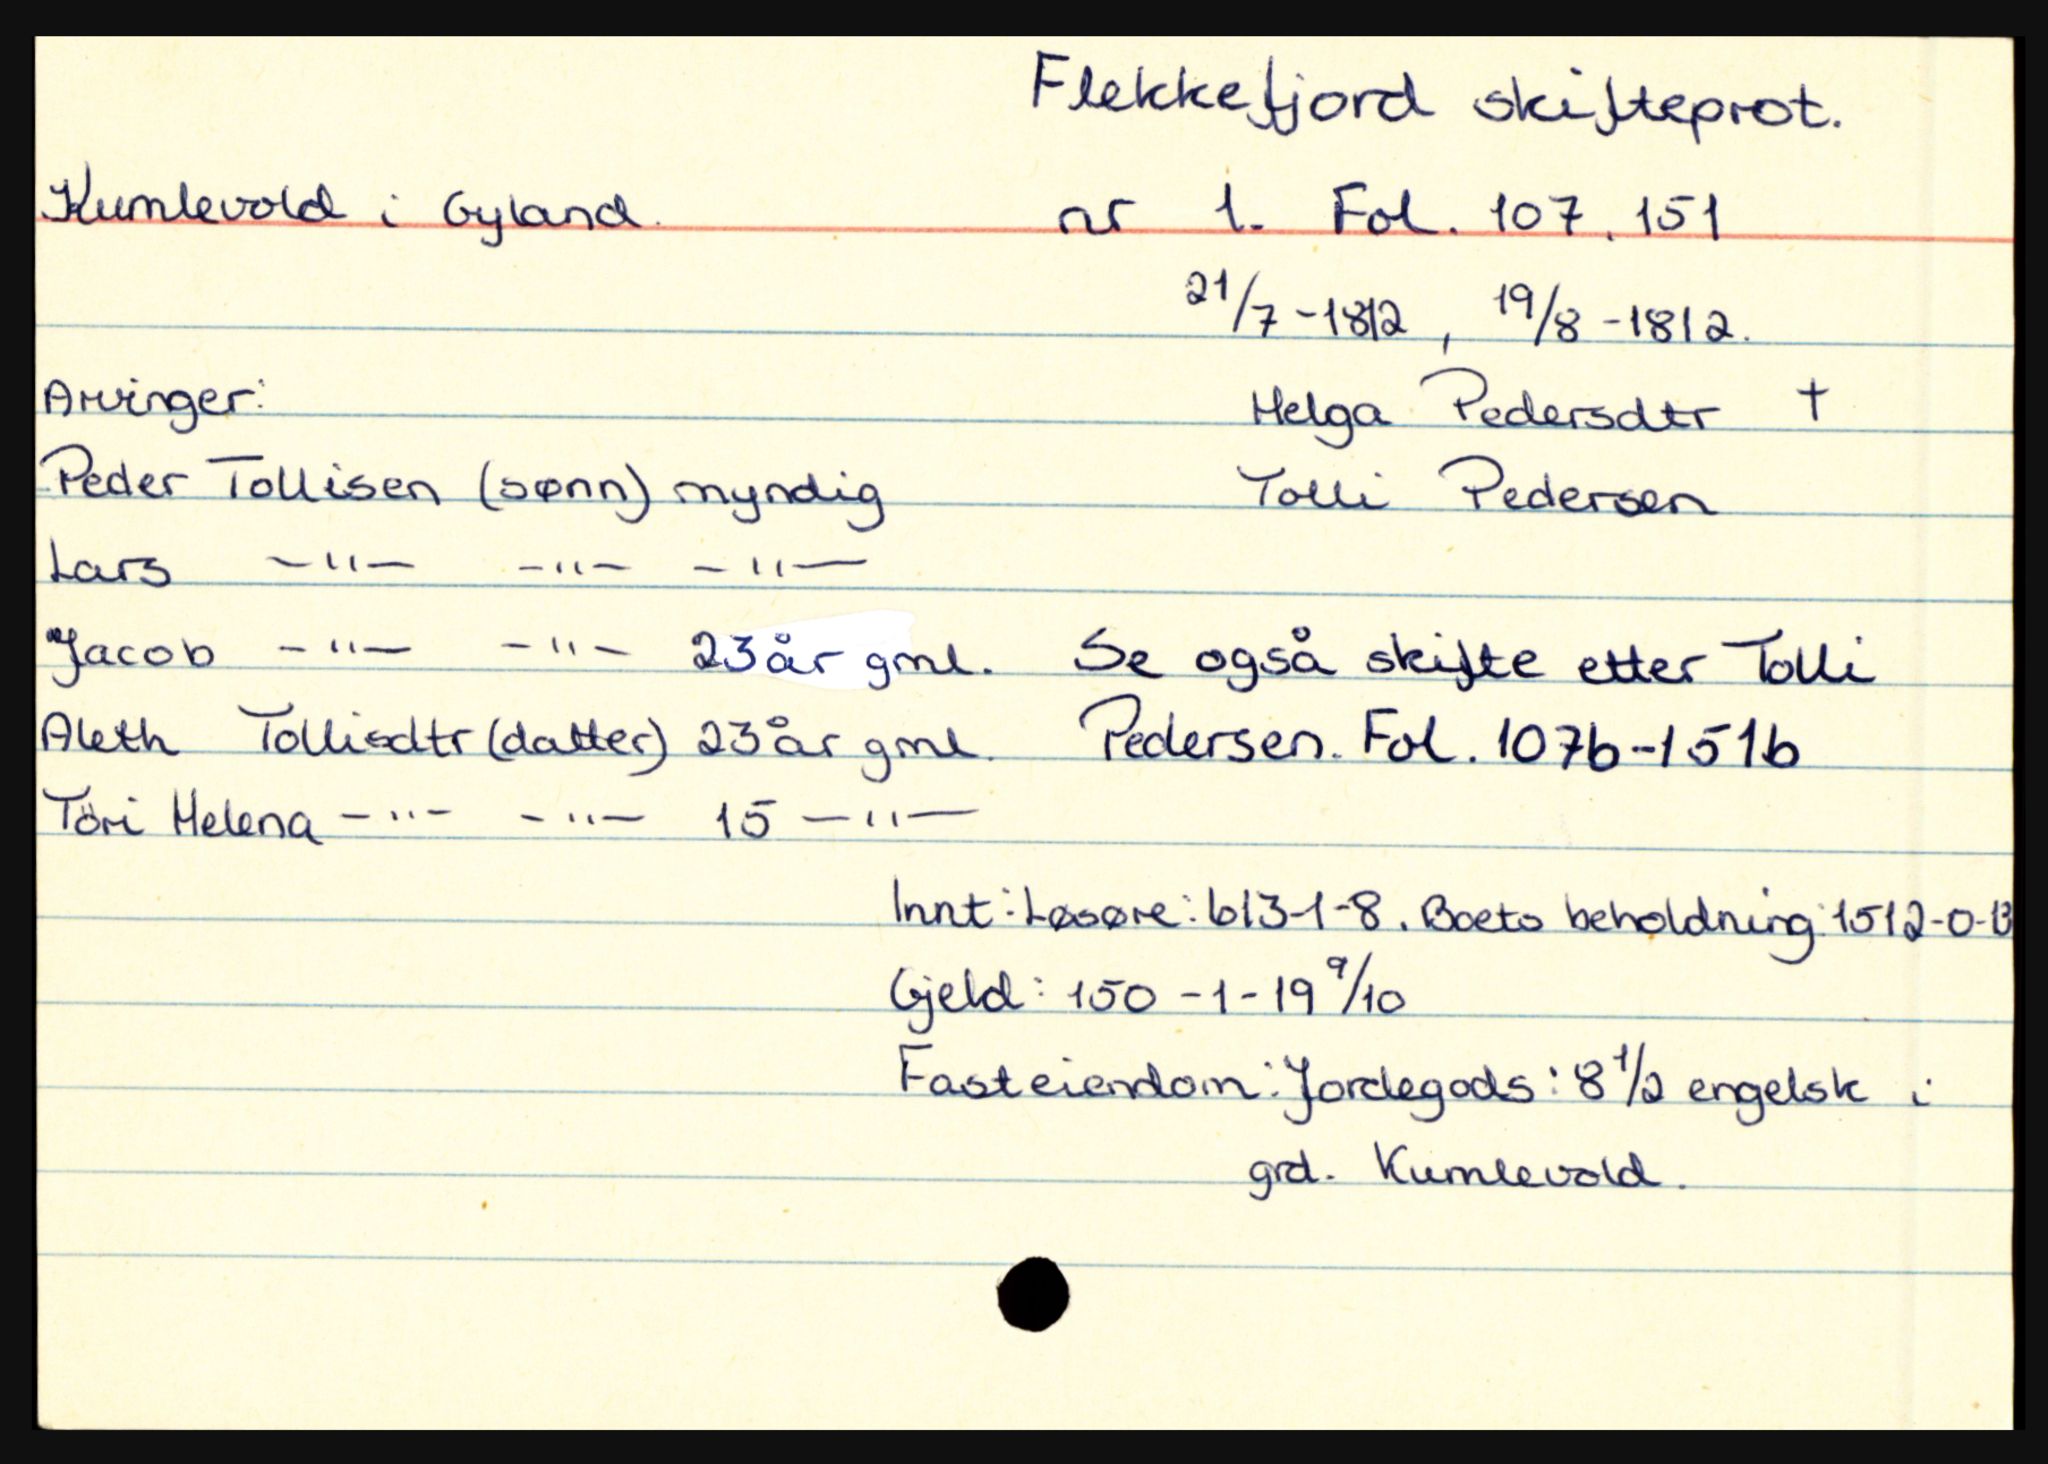 Flekkefjord skifteprot.
Kumlevold i Gyland. nr 1. Fol. 107, 151
21/7-1812, 19/8-1812.
Arvinger: Helga Pedersdtr †
Peder Tollisen (sønn) myndig Tolli Pedersen
Lars -"- -"- -"-
Jacob -"- -"- 23 år gml. Se også skifte etter Tolli
Aleth Tollisdtr (datter) 23 år gml. Pedersen. Fol. 107b-151b
Töri Helena -"- -"- 15 -"-
Innt: Løsøre: 613-1-8. Boets beholdning: 1512-0-13
Gjeld: 150-1-19 9/10
Fast eiendom: Jordegods: 8 1/2 engelsk i
grd. Kumlevold.